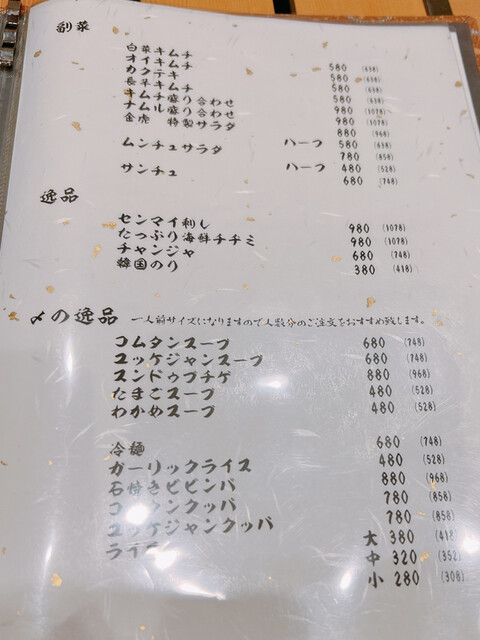 副菜
白菜キムチ 580 (638)
オイキムチ 580 (638)
カクテキ 580 (638)
長芋キムチ 580 (638)
キムチ盛り合わせ 980 (1078)
ナムル盛り合わせ 980 (1078)
金虎 特製サラダ 880 (968)
ムンチュサラダ ハーフ 580 (638)
780 (858)
サンチュ ハーフ 480 (528)
680 (748)
逸品
センマイ刺し 980 (1078)
たっぷり海鮮チヂミ 980 (1078)
チャンジャ 680 (748)
韓国のり 380 (418)
〆の逸品 一人前サイズになりますので人数分のご注文をおすすめ致します。
コムタンスープ 680 (748)
ユッケジャンスープ 680 (748)
スンドゥブチゲ 880 (968)
たまごスープ 480 (528)
わかめスープ 480 (528)
冷麺 680 (748)
ガーリックライス 480 (528)
石焼きビビンバ 880 (968)
コムタンクッパ 780 (858)
ユッケジャンクッパ 780 (858)
ライス 大 380 (418)
中 320 (352)
小 280 (308)